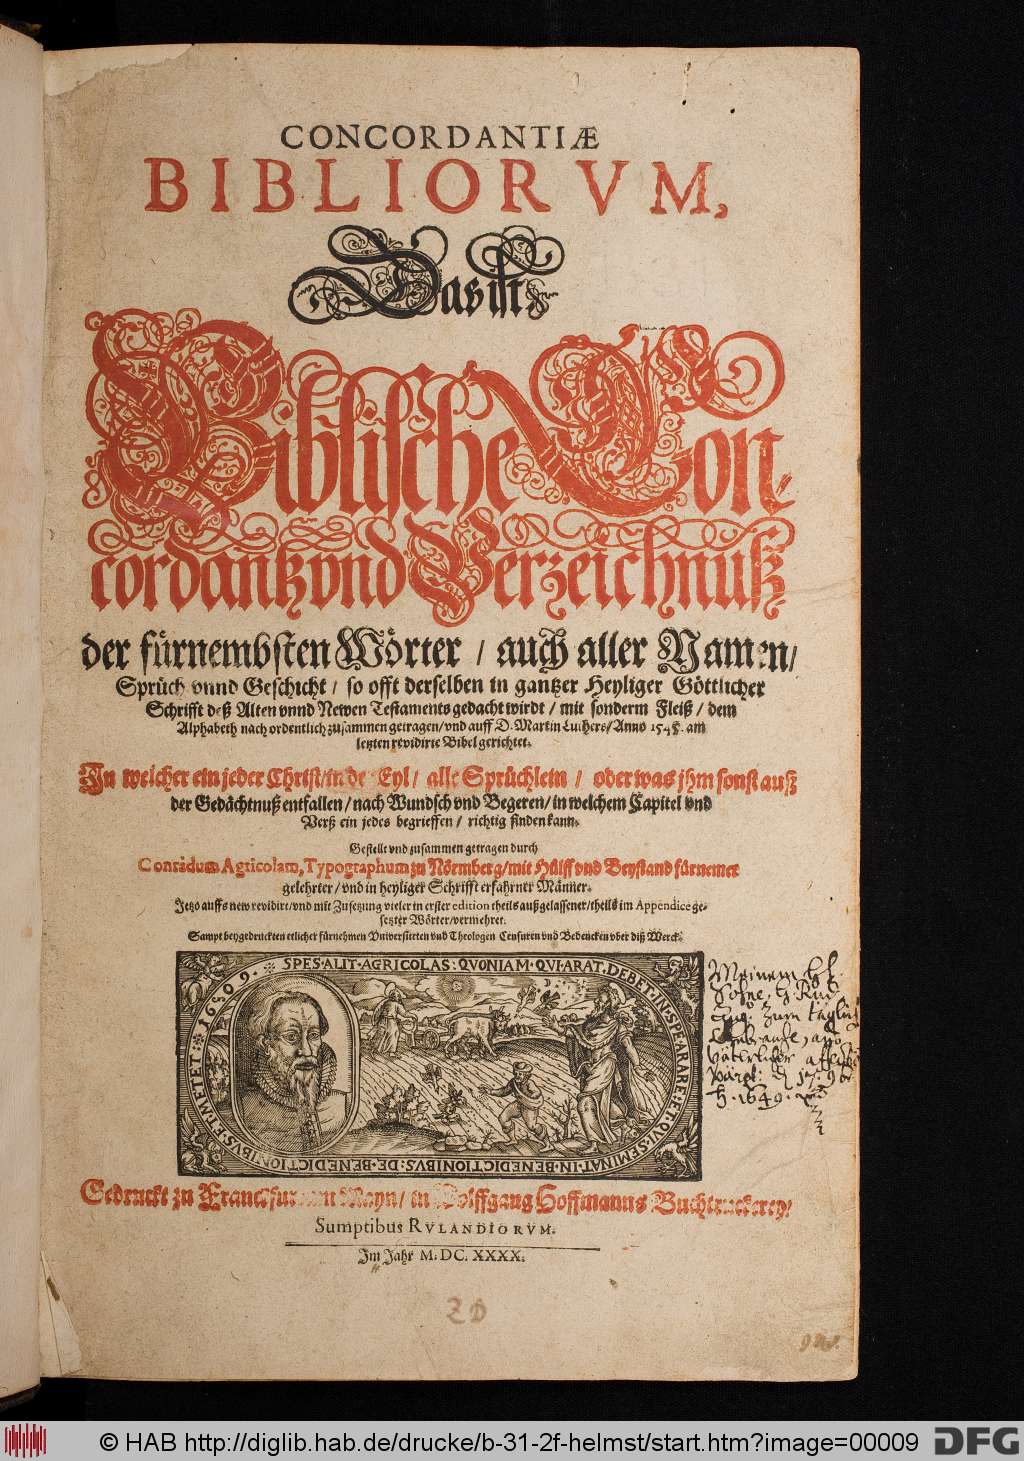 CONCORDANTIÆ
BIBLIORVM,
Das ist
Biblische Con⸗
cordantz vnd Verzeichnuß
der fürnembsten Wörter / auch aller Namen /
Sprüch vnnd Geschicht / so offt derselben in gantzer Heyliger Göttlicher
Schrifft deß Alten vnnd Newen Testaments gedacht wirdt / mit sonderm Fleiß / dem
Alphabeth nach ordentlich zusammen getragen / vnd auff D. Martin Luthers / Anno 1545. am
letzten revidirte Bibel gerichtet.
In welcher ein jeder Christ / in der Eyl / alle Sprüchlein / oder was jhm sonst auß
der Gedächtnuß entfallen / nach Wundsch vnd Begeren / in welchem Capitel vnd
Verß ein jedes begrieffen / richtig finden kann.
Gestellt vnd zusammen getragen durch
Conradum Agricolam, Typographum zu Nörmberg / mit Hülff vnd Beystand fürnemer
gelehrter / vnd in heyliger Schrifft erfahrner Männer.
Jetzo auffs new revidirt / vnd mit Zusetzung vieler in erster edition theils außgelassener / theils im Appendice ge⸗
setzter Wörter / vermehret.
Sampt beygedruckten etlicher fürnehmen Vniversiteten vnd Theologen Censuren vnd Bedencken vber diß Werck.
1609. SPES·ALIT·AGRICOLAS: QVONIAM·QVI·ARAT·DEBET·IN·SPE·ARARE: ET·QVI·SEMINAT·IN·BENEDICTIONIBVS: DE·BENEDICTIONIBVS·ET·METET
Meinem
Sohne
zum
1649.
Gedruckt zu Franckfurt am Mayn / in Wolffgang Hoffmanns Buchtruckerey /
Sumptibus RVLANDIORVM.
Im Jahr M. DC. XXXX.
Z D
© HAB http://diglib.hab.de/drucke/b-31-2f-helmst/start.htm?image=00009 DFG